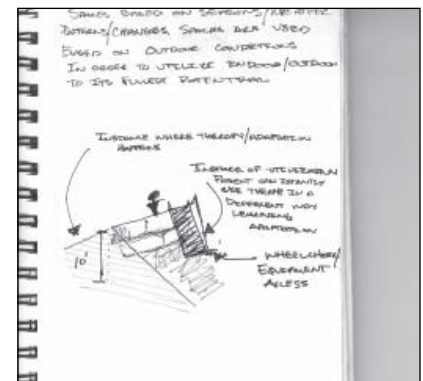 SPACES BASED ON SEASONS/WEATHER
PATTERNS/CHANGES, SPACES ARE USED
BASED ON OUTDOOR CONDITIONS
IN ORDER TO UTILIZE INDOOR/OUTDOOR
TO ITS FULLEST POTENTIAL
INSTANCE WHERE THERAPY/ADAPTATION
HAPPENS
INSTANCE OF UTILIZATION
PATIENT CAN
USE THERAPY IN A
DIFFERENT WAY
LEARNING
ADAPTATION
10'
WHEELCHAIR/
EQUIPMENT
ACCESS